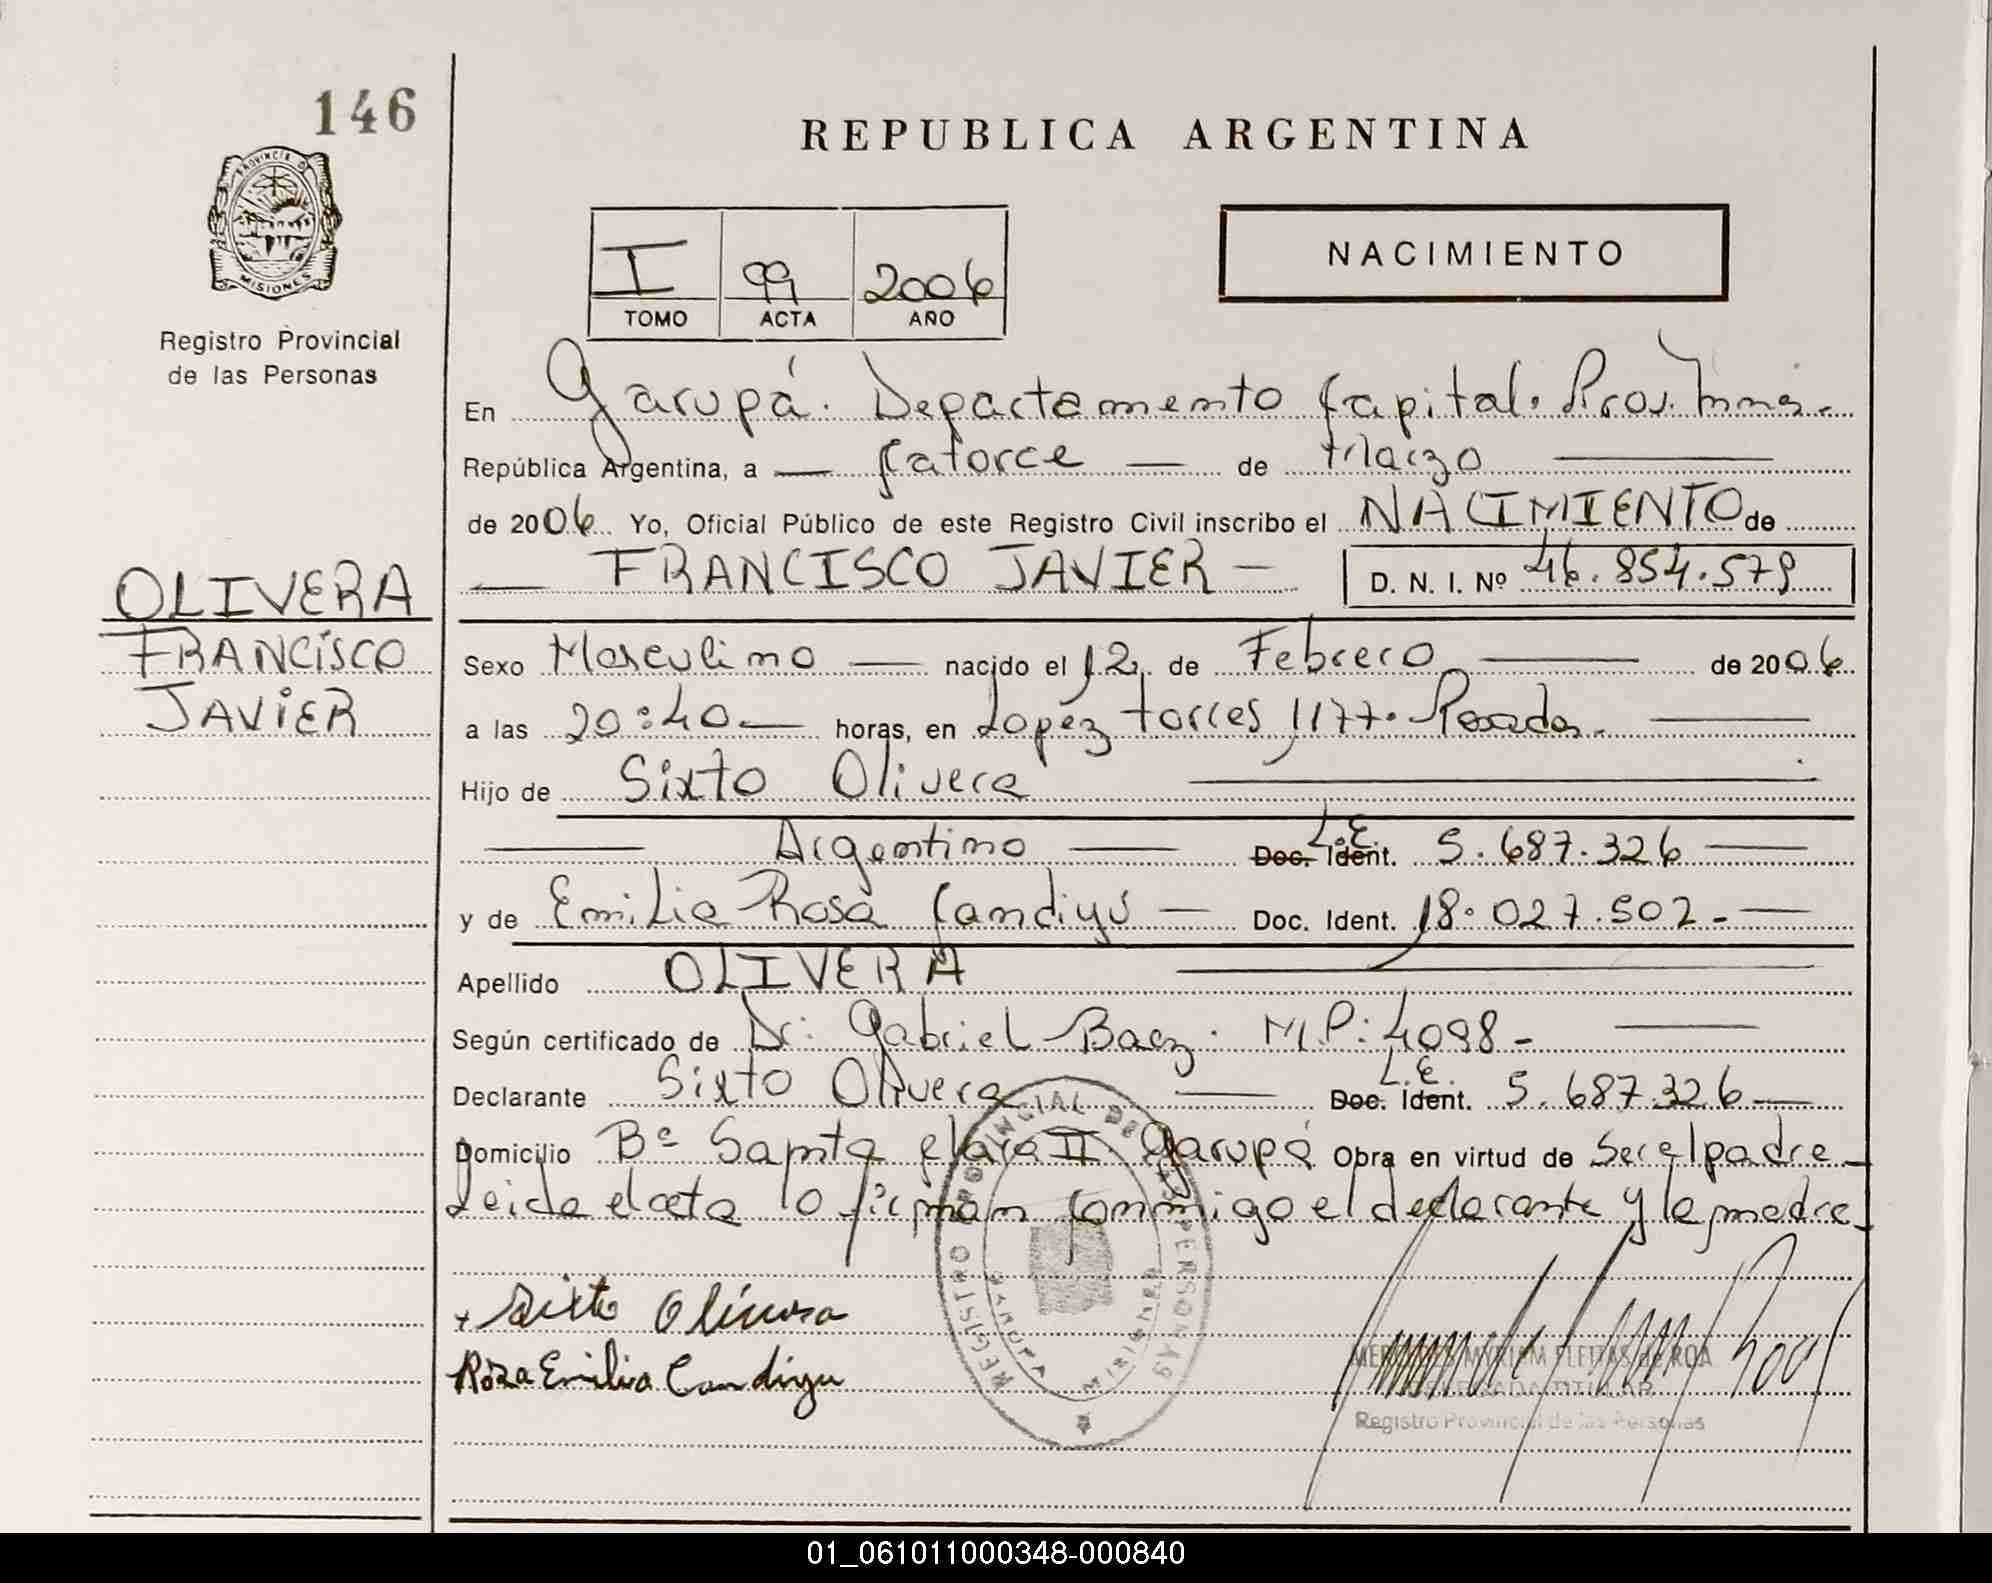 146
REPUBLICA ARGENTINA
PROVINCIA D
MISIONES
Registro Provincial
de las Personas
I 99 2006
TOMO ACTA AÑO
NACIMIENTO
En Garupá. Departamento Capital. Prov. Mnes.
República Argentina, a — Catorce — de Marzo
de 2006 Yo, Oficial Público de este Registro Civil inscribo el NACIMIENTO de
— FRANCISCO JAVIER — D. N. I. Nº 46.854.579
OLIVERA
FRANCISCO
JAVIER
Sexo Masculino — nacido el 12 de Febrero — de 2006
a las 20:40 — horas, en Lopez Torres 1177. Posadas.
Hijo de Sixto Olivera
— Argentino — Doc. Ident. L.E. 5.687.326 —
y de Emilia Rosa Candiyú — Doc. Ident. 18.027.502. —
Apellido OLIVERA
Según certificado de Dr: Gabriel Baez. M.P: 4098 -
Declarante Sixto Olivera — Doc. Ident. L.E. 5.687.326 —
Domicilio Bº Santa Clara II Garupá Obra en virtud de Ser el padre
Leida el acta lo firman conmigo el declarante y la madre
+ Sixto Olivera
Roza Emilia Candiyu
REGISTRO PROVINCIAL DE LAS PERSONAS
GARUPA MISIONES
MERCEDES MYRIAM FLEITAS de ROA
DELEGADA TITULAR
Registro Provincial de las Personas
01_061011000348-000840